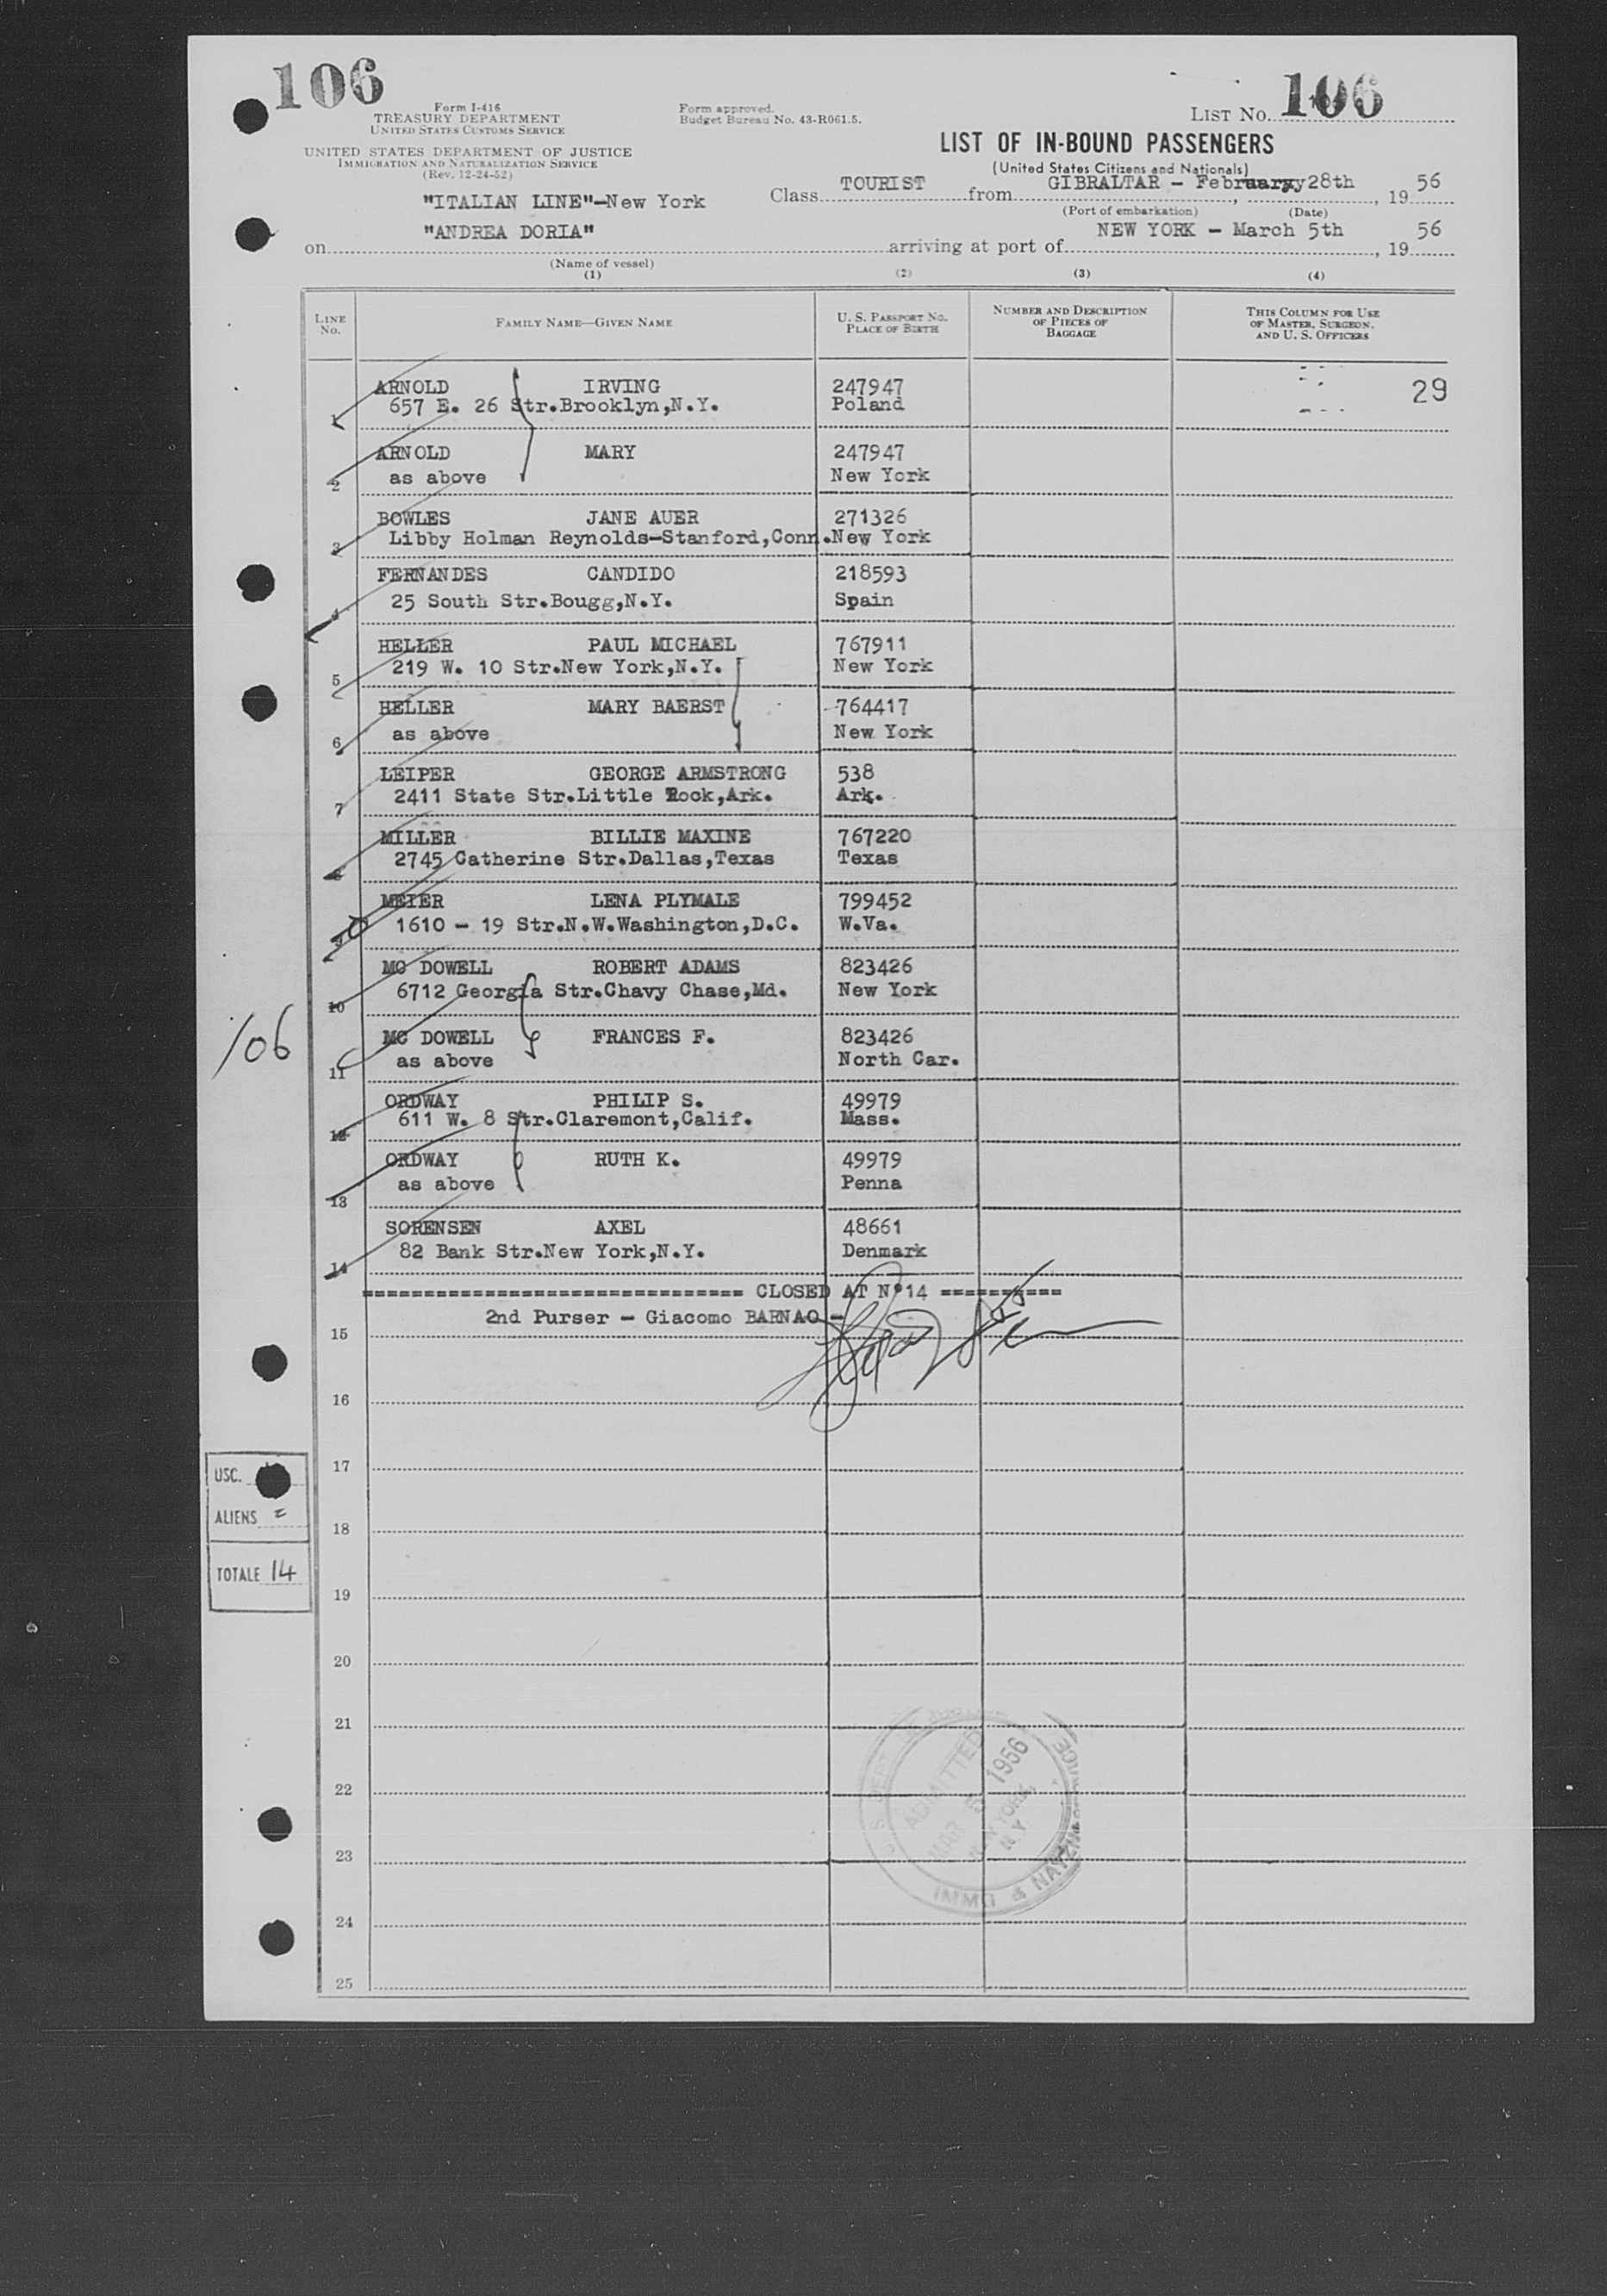 106
Form I-416
TREASURY DEPARTMENT
UNITED STATES CUSTOMS SERVICE
UNITED STATES DEPARTMENT OF JUSTICE
IMMIGRATION AND NATURALIZATION SERVICE
(Rev. 12-24-52)
Form approved.
Budget Bureau No. 43-R061.5.
LIST No. 106
LIST OF IN-BOUND PASSENGERS
(United States Citizens and Nationals)
"ITALIAN LINE"-New York
Class TOURIST from GIBRALTAR - February 28th, 1956
(Port of embarkation) (Date)
on "ANDREA DORIA" arriving at port of NEW YORK - March 5th, 1956
(Name of vessel)
(1) (2) (3) (4)
LINE No. FAMILY NAME—GIVEN NAME U. S. PASSPORT No. PLACE OF BIRTH NUMBER AND DESCRIPTION OF PIECES OF BAGGAGE THIS COLUMN FOR USE OF MASTER, SURGEON, AND U. S. OFFICERS
ARNOLD IRVING 247947 29
1 657 E. 26 Str.Brooklyn,N.Y. Poland
ARNOLD MARY 247947
2 as above New York
BOWLES JANE AUER 271326
3 Libby Holman Reynolds-Stanford,Conn.New York
FERNANDES CANDIDO 218593
4 25 South Str.Bougg,N.Y. Spain
HELLER PAUL MICHAEL 767911
5 219 W. 10 Str.New York,N.Y. New York
HELLER MARY BAERST 764417
6 as above New York
LEIPER GEORGE ARMSTRONG 538
7 2411 State Str.Little Rock,Ark. Ark.
MILLER BILLIE MAXINE 767220
8 2745 Catherine Str.Dallas,Texas Texas
MEIER LENA PLYMALE 799452
9 1610 - 19 Str.N.W.Washington,D.C. W.Va.
MC DOWELL ROBERT ADAMS 823426
10 6712 Georgia Str.Chavy Chase,Md. New York
106
MC DOWELL FRANCES F. 823426
11 as above North Car.
ORDWAY PHILIP S. 49979
12 611 W. 8 Str.Claremont,Calif. Mass.
ORDWAY RUTH K. 49979
13 as above Penna
SORENSEN AXEL 48661
14 82 Bank Str.New York,N.Y. Denmark
============================ CLOSED AT Nº14 ==========
2nd Purser - Giacomo BARNAO -
15
16
17
USC.
ALIENS =
18
TOTALE 14
19
20
21
22
23
24
25
U. S. DEPT. JUSTICE
ADMITTED
MAR 5 1956
NEW YORK, N.Y.
IMMG & NATZN